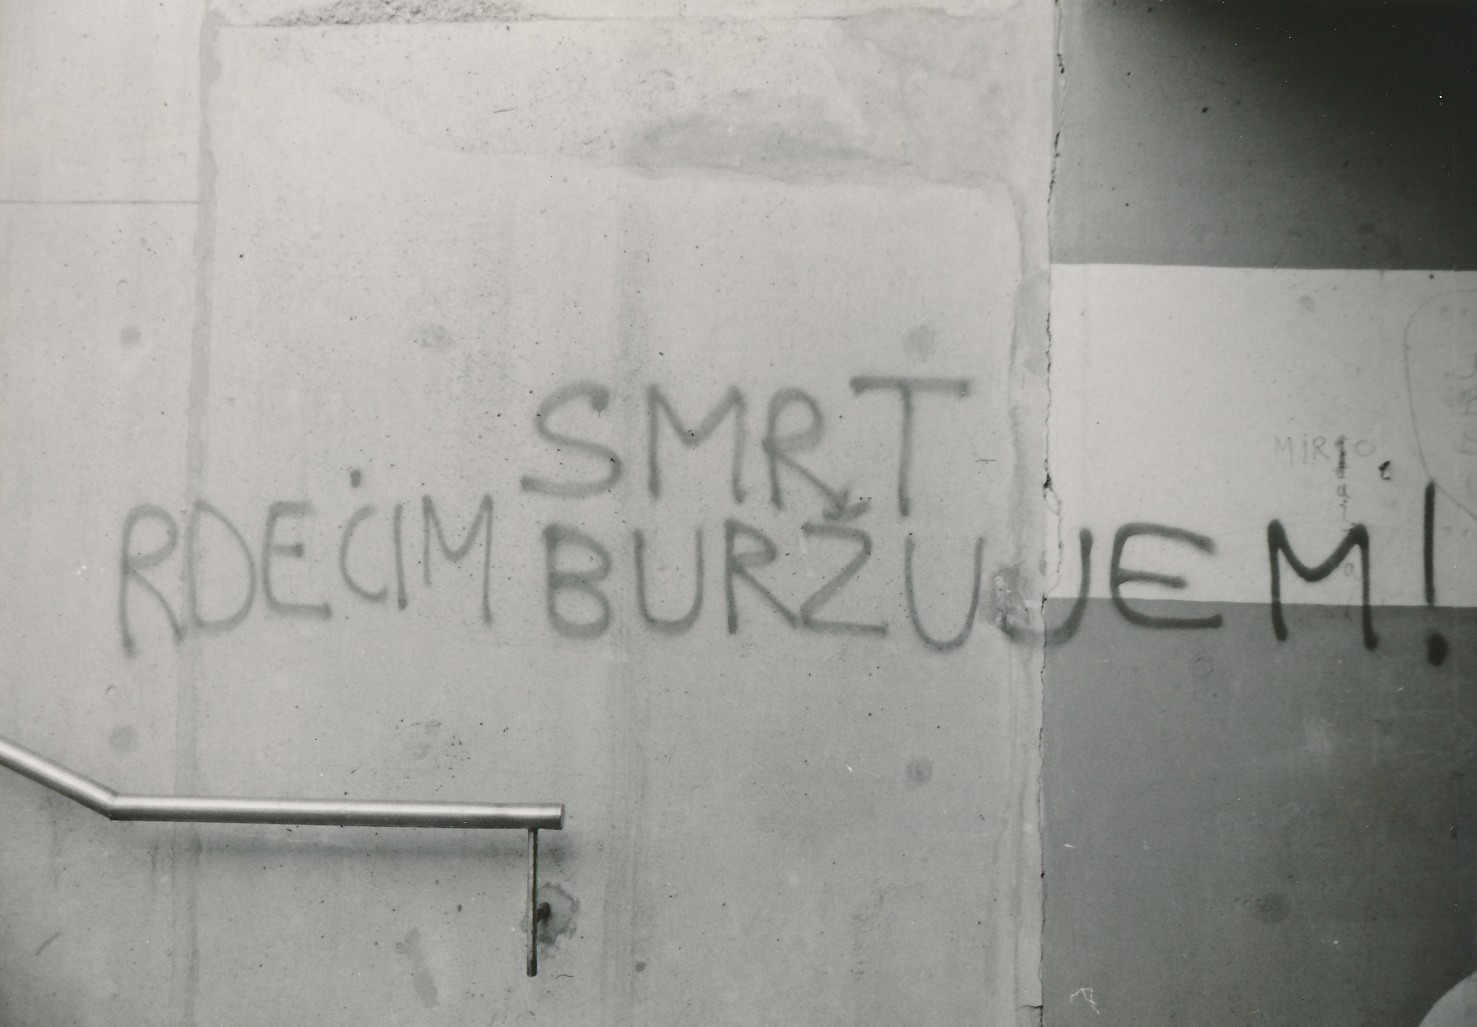 SMRT
RDEĊIM BURŽUJEM!
MiRKO